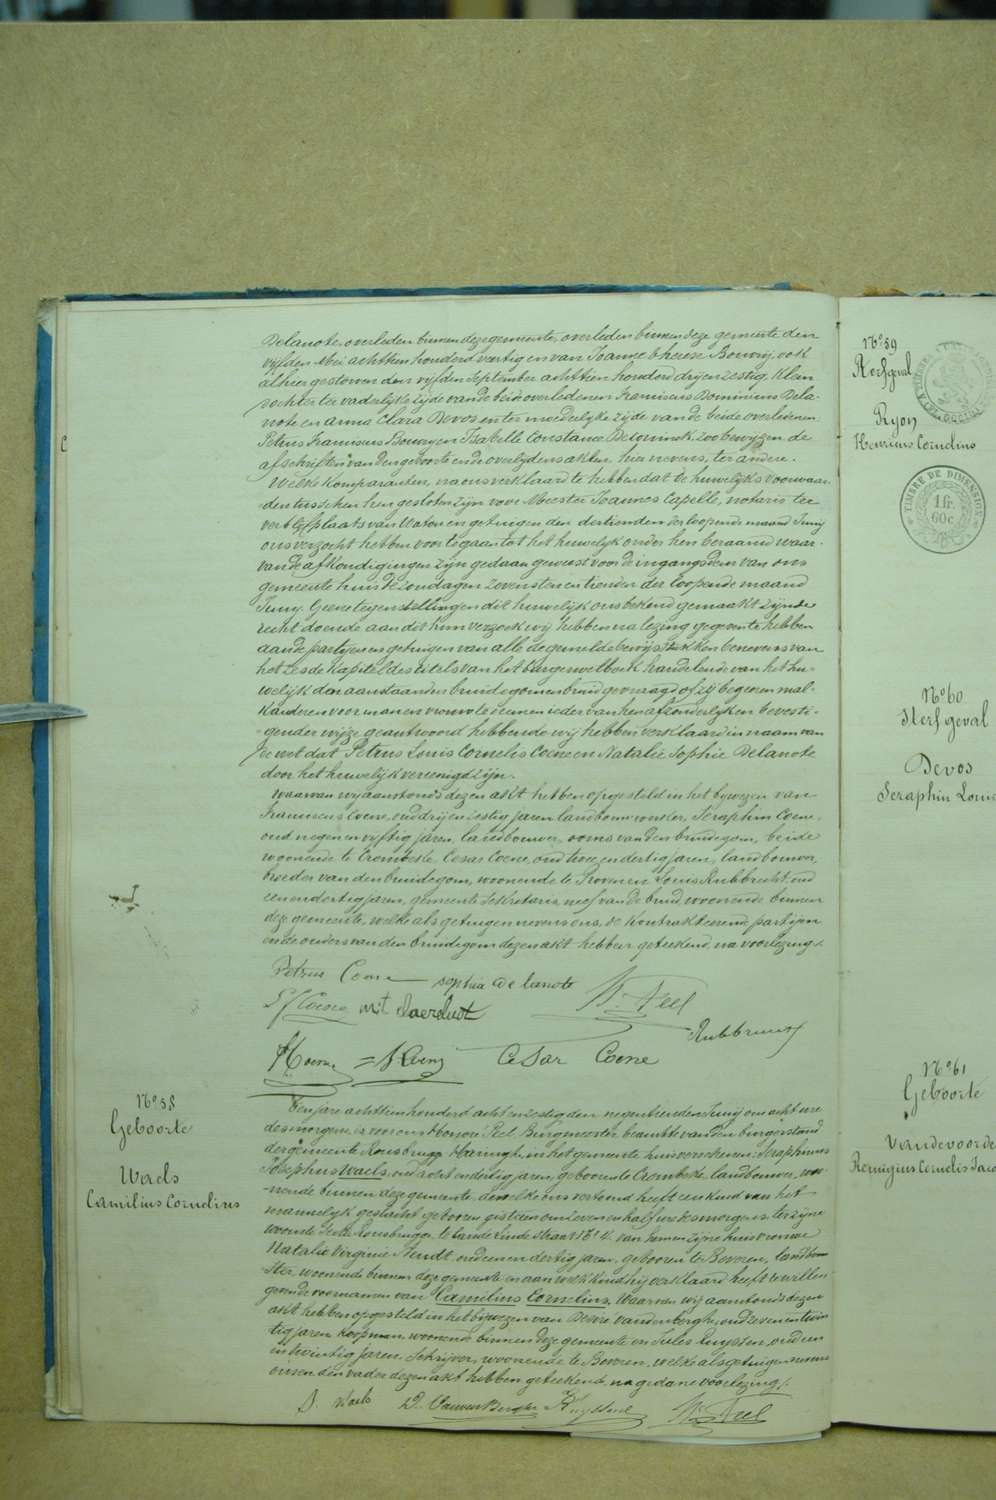 Delanote, overleden binnen deze gemeente, overleden binnen deze gemeente den
vijfden Mei achttien honderd veertig en van Joanne Therese Bouvry, ook
alhier gestorven den vijfden September achttien honderd drij en zestig. Klein
dochter ter vaderlijke zijde van de beide overledenen Franciscus Dominicus Dela-
note en anna Clara Devos en ter moederlijke zijde van de beide overledenen
Petrus Franciscus Bouvry en Isabelle Constance Deconinck. zoo bewijzen de
afschriften van den geboorte en de overlijdens akten hier nevens, ter andere.
Welke komparanten, na ons verklaard te hebben dat de huwelijks voorwaar-
den tusschen hen gesloten zijn voor Meester Joannes Capelle, notaris ter
verblijfplaats van Watou en getuigen den dertienden der loopende maand Juny
ons verzocht hebben voor te gaan tot het huwelijk onder hen beraamd waar-
van de afkondigingen zijn gedaan geweest voor de ingangsdeur van ons
gemeente huis de zondagen zevensten en tienden der loopende maand
Juny. Geene tegenstellingen dit huwelijk ons bekend gemaakt zijnde
recht doende aan dit hun verzoek wij hebben na lezing gegeven te hebben
aan de partijen en getuigen van alle de gemelde bewijsstukken benevens van
het zesde kapittel des titels van het burger wetboek handelende van het hu-
welijk den aanstaanden bruidegom en bruid gevraagd of zij begeeren mal-
kanderen voor man en vrouw te nemen ieder van hen afzonderlijk en bevesti-
gender wijze geantwoord hebbende wij hebben verklaard in naam van
de wet dat Petrus Louis Cornelis Coene en Natalie Sophie Delanote
door het huwelijk vereenigd zijn.
Waarvan wij aanstonds dezen akt hebben opgesteld in het bijwezen van
Franciscus Coene, oud drij en zestig jaren landbouwer, Seraphin Coene,
oud negen en vijftig jaren, landbouwer, ooms van den bruidegom, beide
woonende te Crombeke, Cesar Coene, oud twee en dertig jaren, landbouwer,
broeder van den bruidegom, woonende te Proven en Louis Rubbrecht, oud
een en dertig jaren, gemeente Sekretaris, neef van de bruid, woonende binnen
deze gemeente, welke als getuigen nevens ons, de kontrakteerende partijen
en de ouders van den bruidegom dezen akt hebben geteekend, na voorlezing.
Petrus Coene sophia de lanote H. Peel
Coene
Rubbrecht
Coene Coene Cesar Coene
N° 58
Geboorte
Waels
Camilius Cornelius
Ten jare achttien honderd acht en zestig den negentienden Juny om acht ure
des morgens, is voor ons Honoré Peel Burgmeester, beambte van den burgerstand
der gemeente Rousbrugge Haringhe in het gemeente huis verschenen: Seraphinus
Josephus Waels, oud acht en dertig jaren, geboren te Crombeke, landbouwer, woo-
nende binnen deze gemeente, dewelke ons vertoond heeft een kind van het
mannelijk geslacht geboren gisteren om zeven en half ure 's morgens ter zijne
woonste Sectie Rousbrugge, te Lande Linde Straat N° 4. van hem en zijne huisvrouwe
Natalie Virginie Neudt, oud een en dertig jaren, geboren te Beveren, landbouw-
ster, woonende binnen deze gemeente en aan welk kind hij verklaard heeft te willen
geven de voornamen van Camilius Cornelius. Waarvan wij aanstonds dezen
akt hebben opgesteld in het bijwezen van Désiré Vandenberghe, oud zeven en twin-
tig jaren, koopman, woonende binnen deze gemeente en Jules Ruyssen, oud een
en twintig jaren, Schrijver, woonende te Beveren, welke als getuigen nevens
ons en den vader dezen akt hebben geteekend, na gedane voorlezing.
S. Waels D. Vandenberghe Ruyssen H. Peel
N° 59
Sterfgeval
Ryon
Henricus Cornelius
TIMBRE DE DIMENSION
1 fr.
60 c.
N° 60
Sterfgeval
Devos
Seraphin Louis
N° 61
Geboorte
Vandevoorde
Remigius Cornelis Jaco